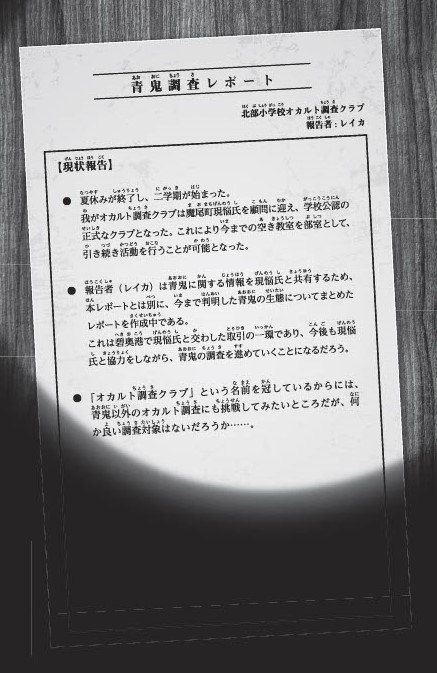 青鬼調査レポート
北部小学校オカルト調査クラブ
報告者：レイカ
【現状報告】
● 夏休みが終了し、二学期が始まった。
我がオカルト調査クラブは魔尾町現悩氏を顧問に迎え、学校公認の
正式なクラブとなった。これにより今までの空き教室を部室として、
引き続き活動を行うことが可能となった。
● 報告者（レイカ）は青鬼に関する情報を現悩氏と共有するため、
本レポートとは別に、今まで判明した青鬼の生態についてまとめた
レポートを作成中である。
これは碧奥港で現悩氏と交わした取引の一環であり、今後も現悩
氏と協力をしながら、青鬼の調査を進めていくことになるだろう。
● 『オカルト調査クラブ』という名前を冠しているからには、
青鬼以外のオカルト調査にも挑戦してみたいところだが、何
か良い調査対象はないだろうか……。